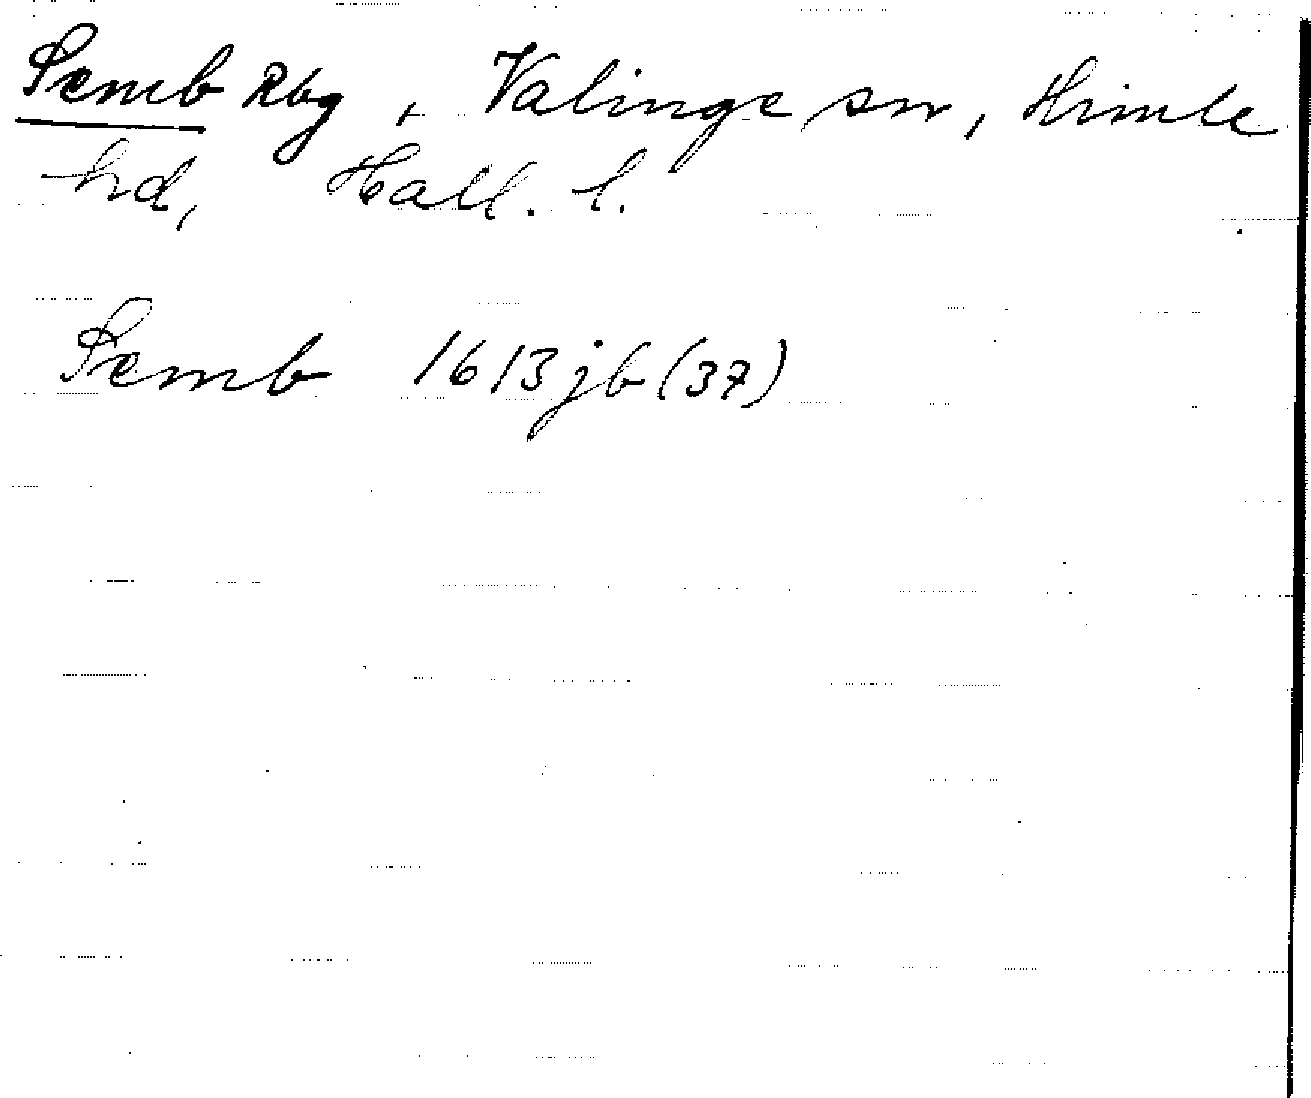 Semb Rbg, Valinge sn, Himle
hd, Hall. l.
Semb 1613 jb (37)